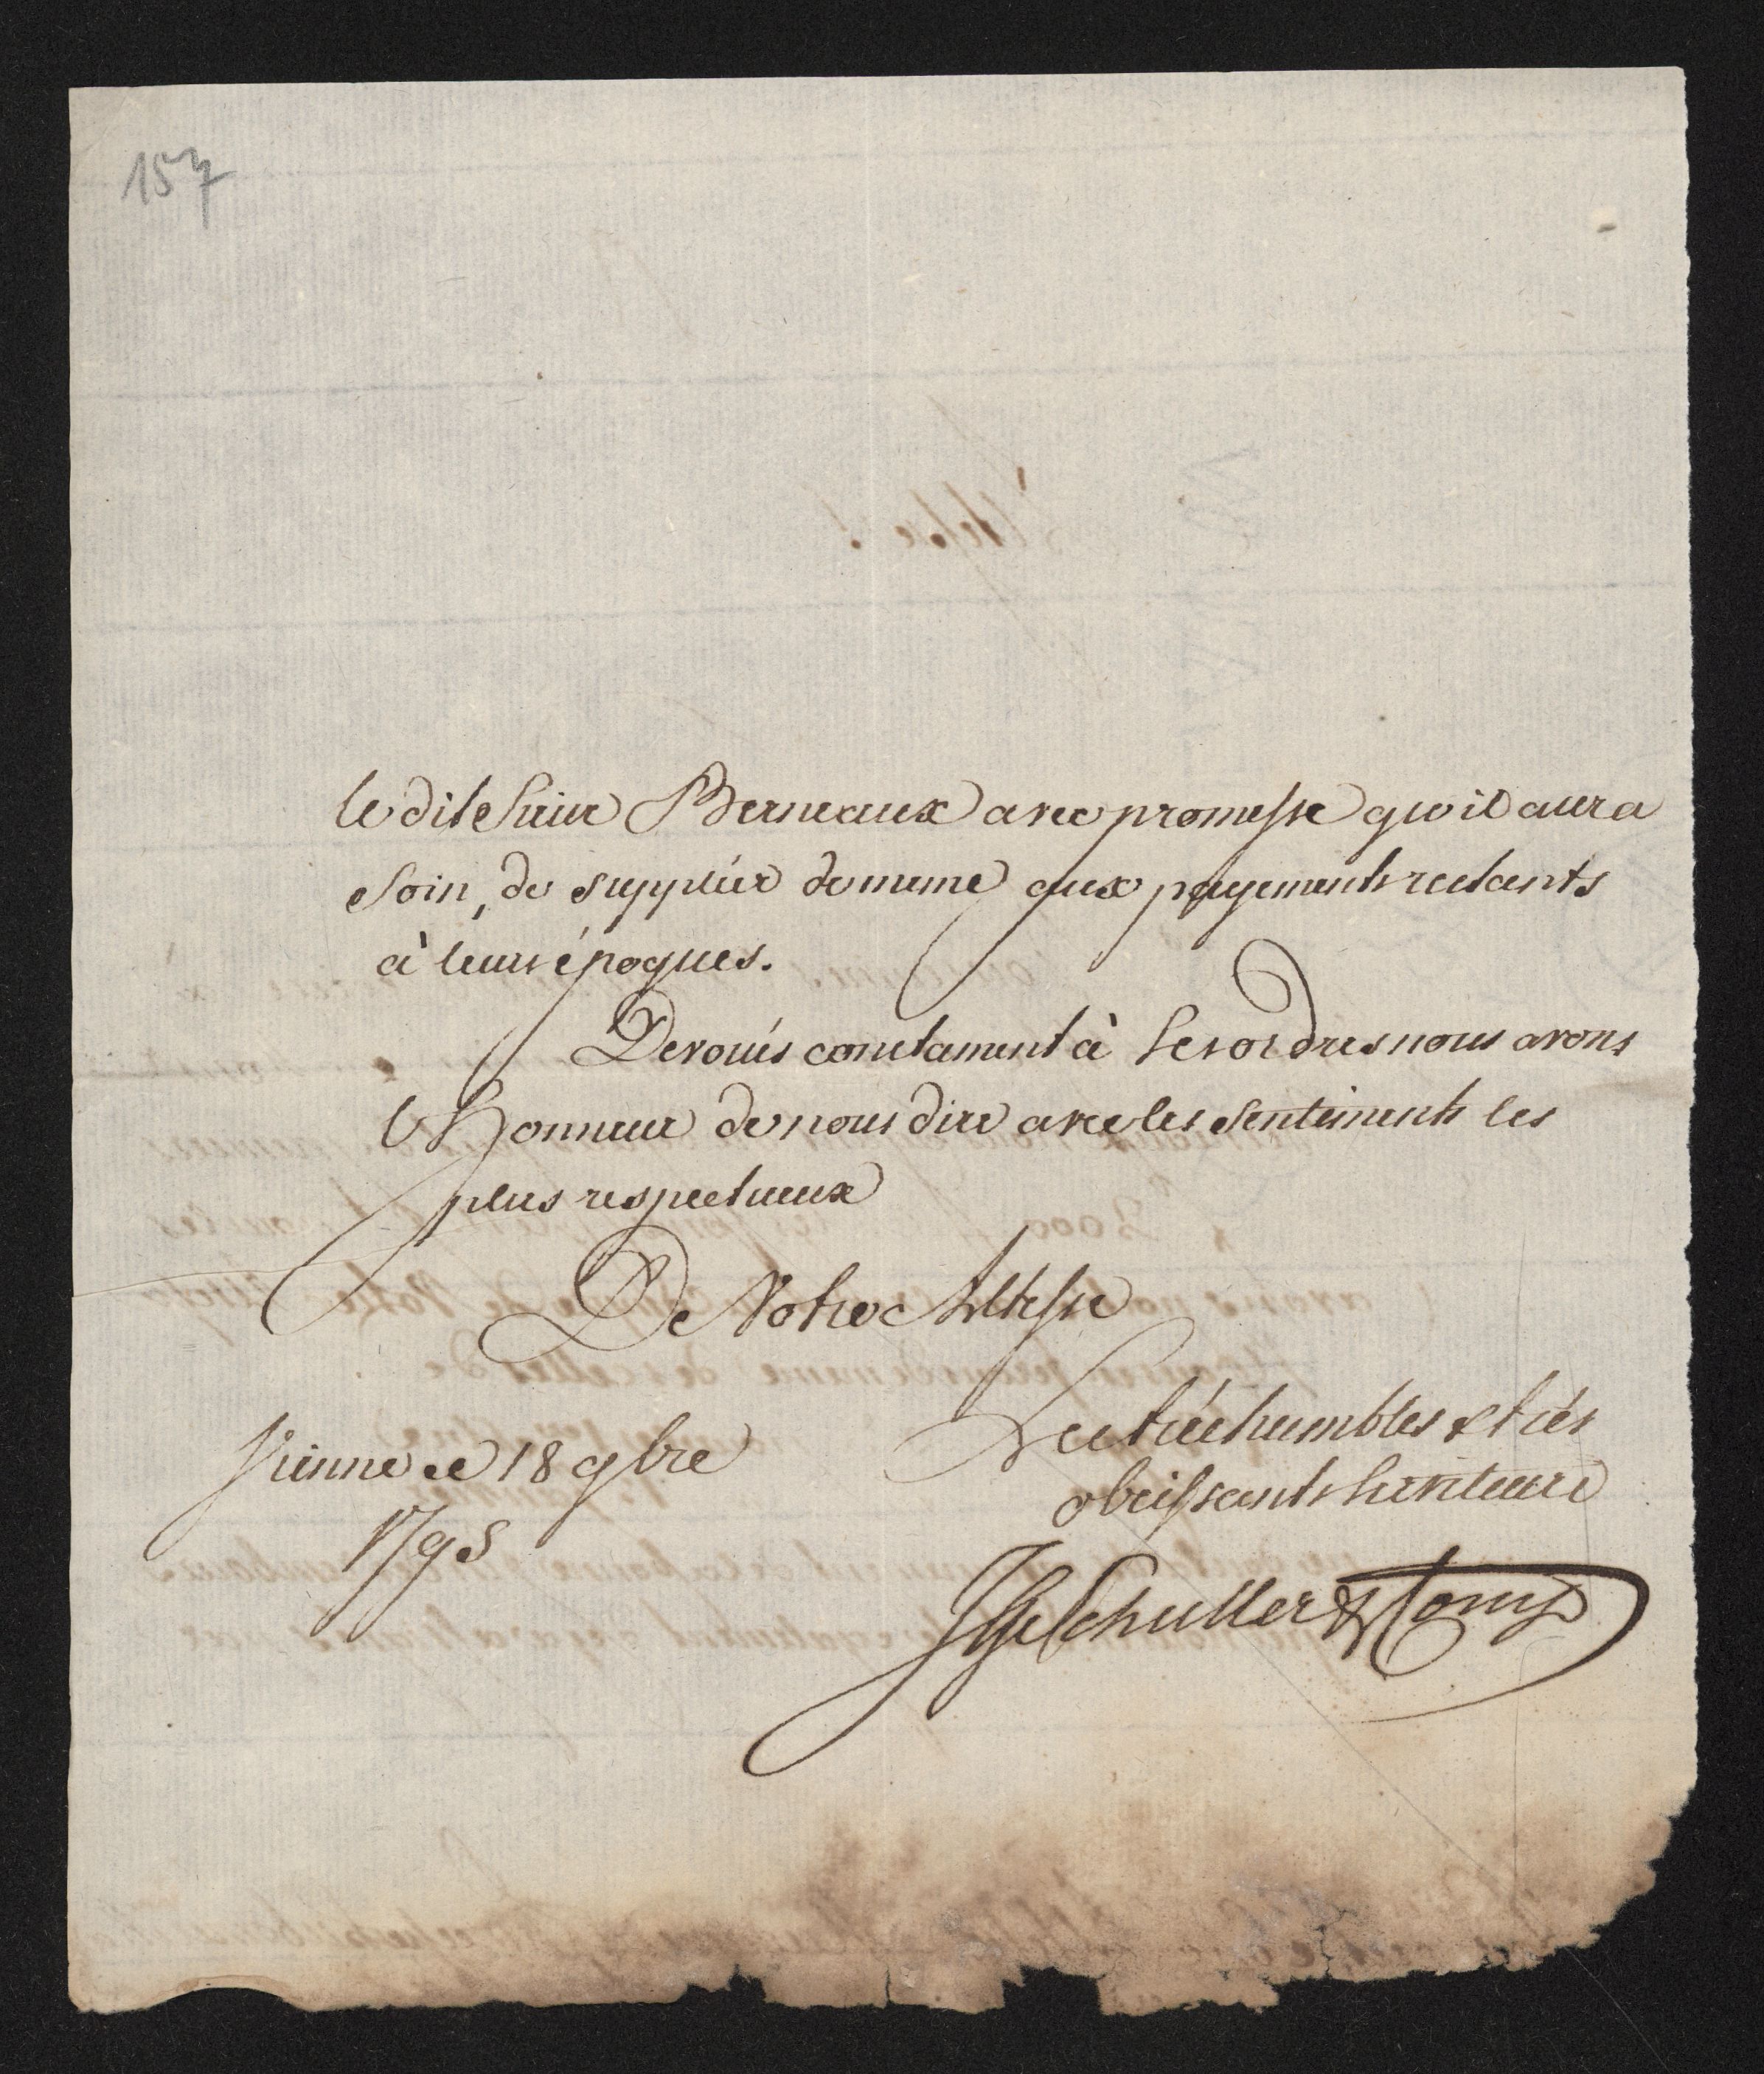 157
le dit Sieur Berneaux avec promesse qu'il aura
Soin, de suppléer de meme aux payements restants
à leurs époques.
Devoués constament à Ses ordres nous avons
l'Honneur de nous dire avec les Sentiments les
plus respectueux
De Votre Altesse
Vienne ce 18 9bre
1795
Les trés humbles & trés
obeissants Serviteurs
Schuller & Comp